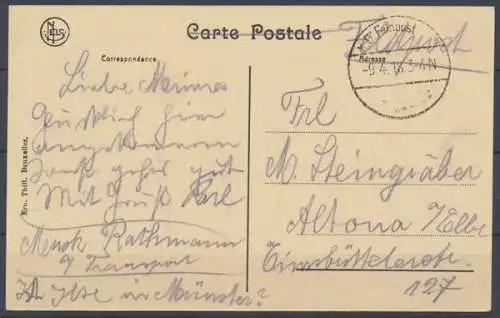 NELS
Carte Postale
Feldpost
Correspondance
Adresse
K.D. Feldpost
-9.4.16.3-4N
Liebe Minna
Glücklich hier
angekommen
sonst gehts gut
Mit Gruß Karl
Musk Rathmann
Transport
Ist Ilse in Münster?
Frl
M. Steingräber
Altona a/Elbe
Eimsbüttelerstr.
127
Ern. Thill, Bruxelles.